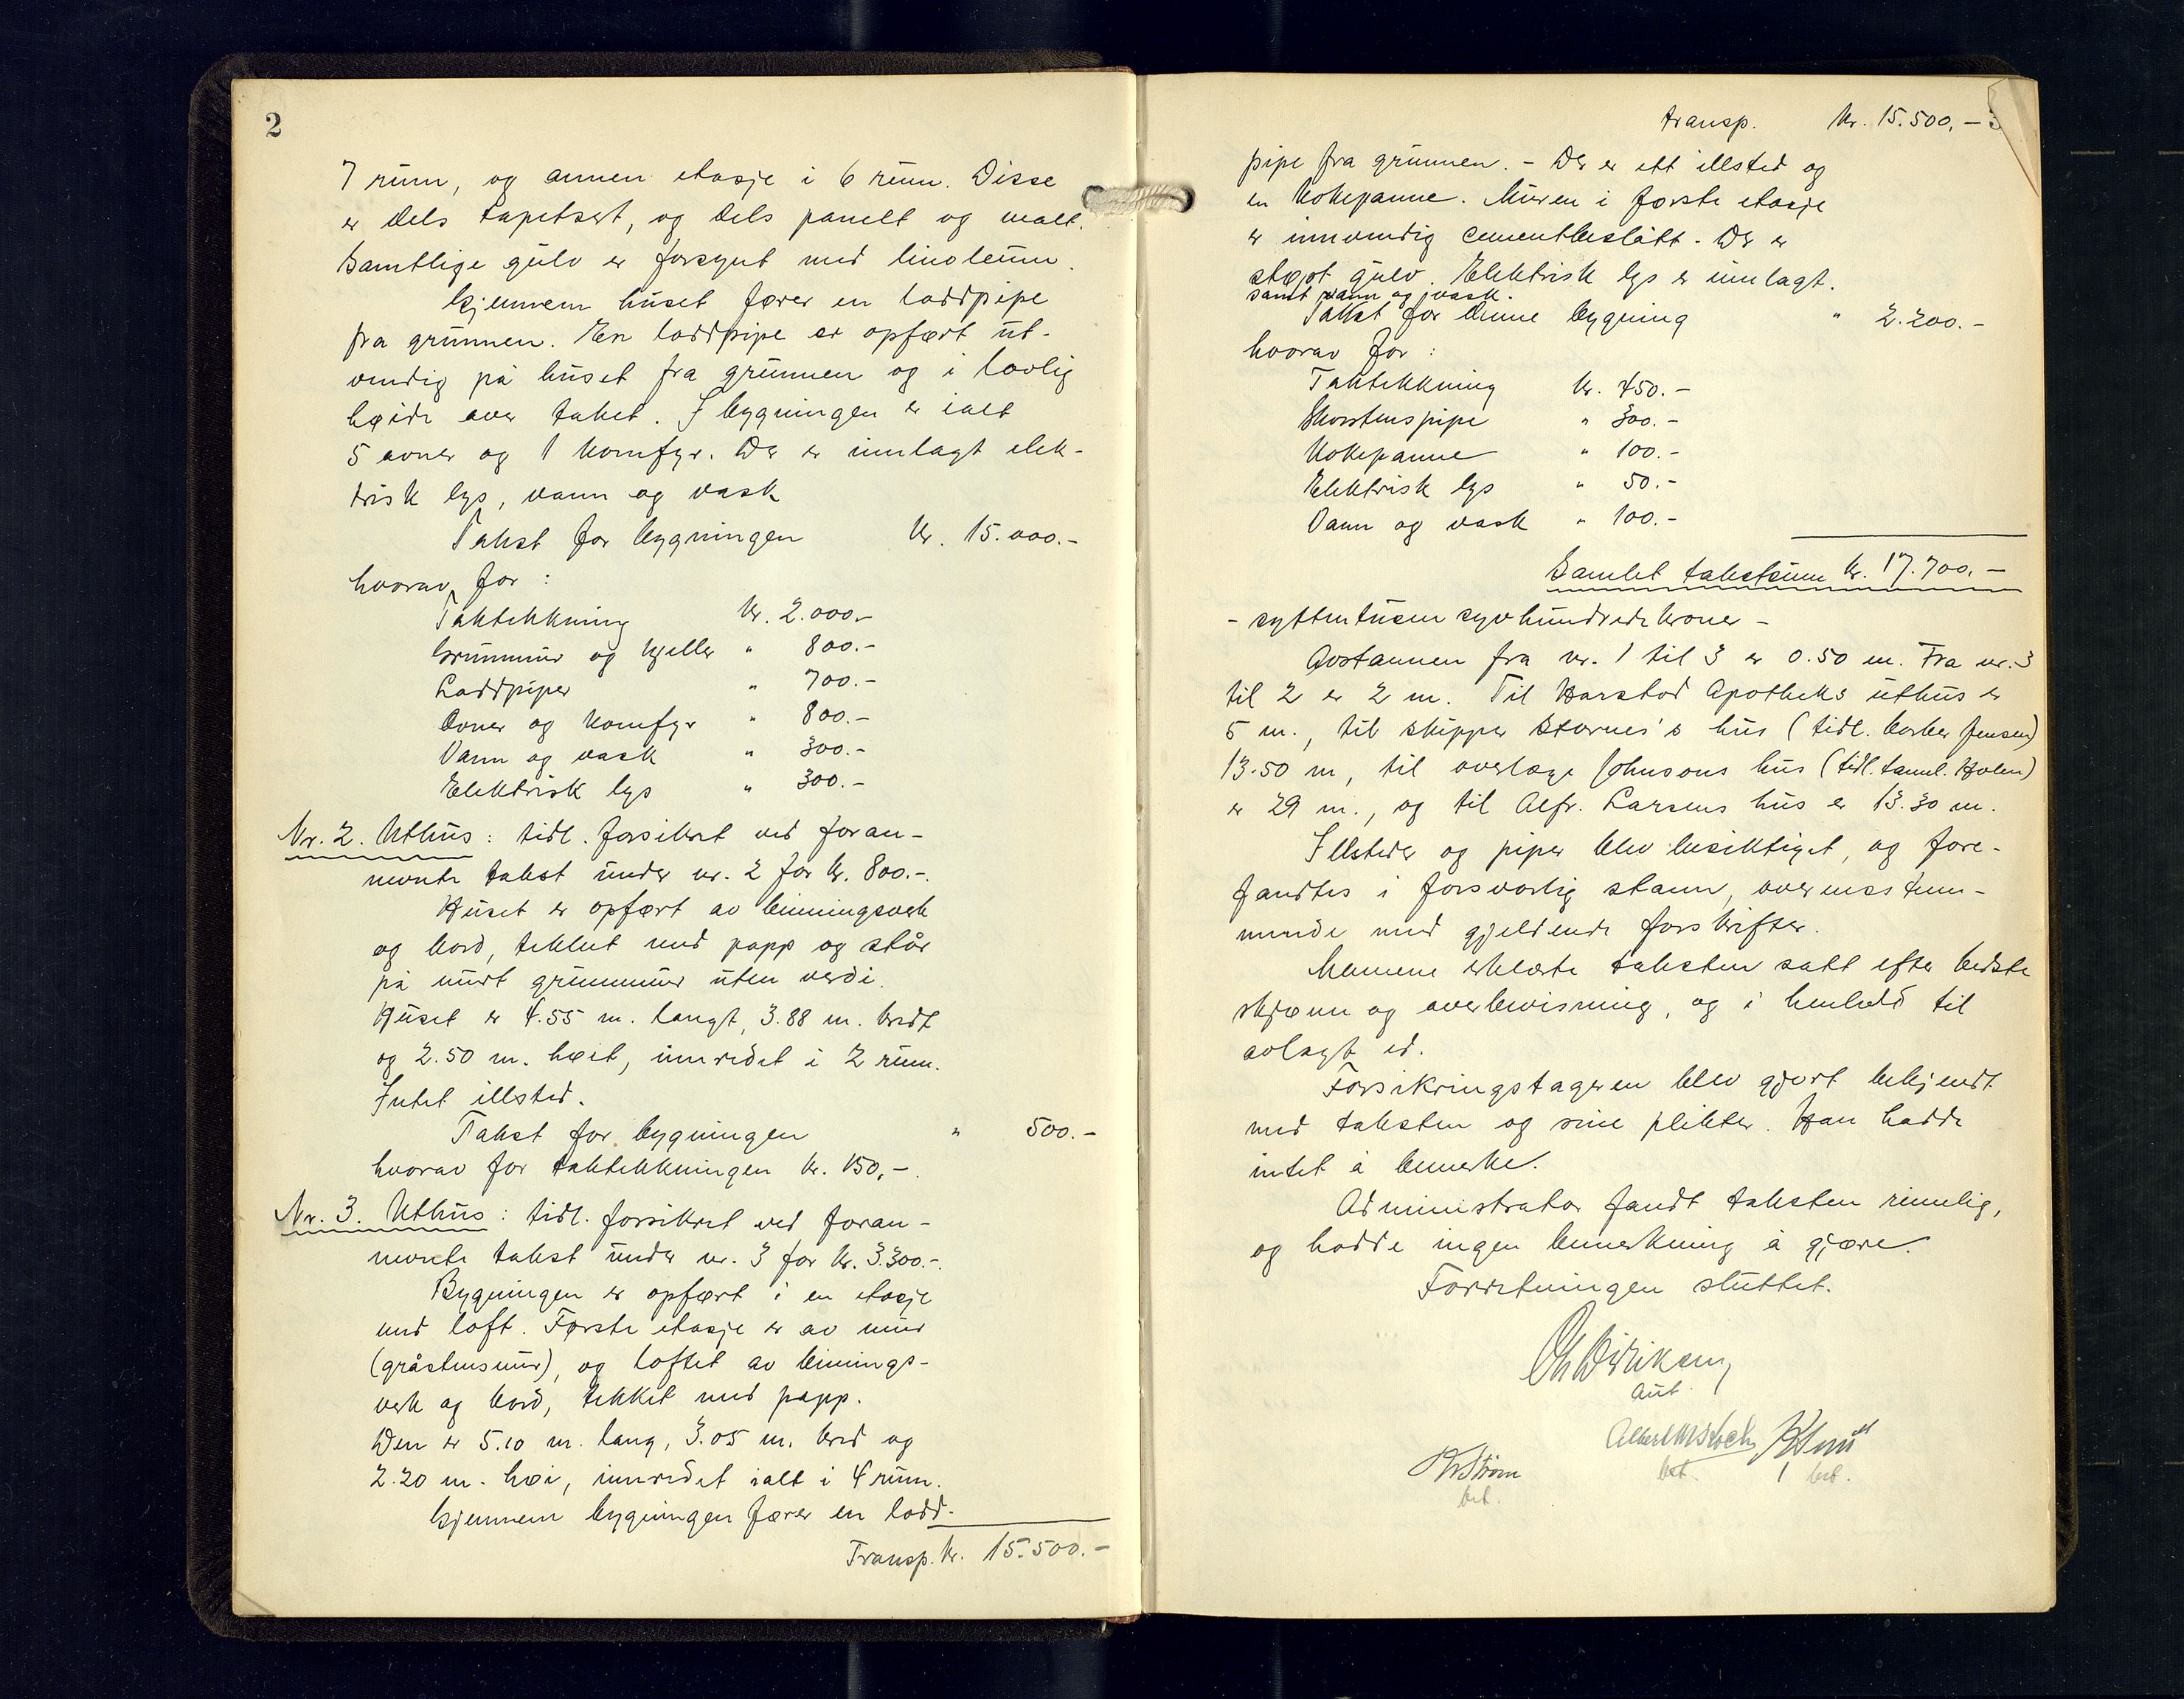 2
7 rum, og annen etasje i 6 rum. Disse
er dels tapetsert, og dels panelt og malt.
Samtlige gulv er forsynt med linoleum.
Gjennem huset fører en loddpipe
fra grunnen. En loddpipe er opført ut-
vendig på huset fra grunnen og i lovlig
høide over taket. I bygningen er ialt
5 ovner og 1 komfyr. Der er innlagt elek-
trisk lys, vann og vask
Takst for bygningen kr. 15.000.-
hvorav for :
Taktekkning kr. 2.000.-
Grunnmur og kjeller " 800.-
Loddpiper " 700.-
Ovner og komfyr " 800.-
Vann og vask " 300.-
Elektrisk lys " 300.-
Nr. 2. Uthus : tidl. forsikret ved foran-
nevnte takst under nr. 2 for kr. 800.-.
Huset er opført av binningsverk
og bord, tekket med papp og står
på muret grunnmur uten verdi.
Huset er 4.55 m. langt, 3.88 m. bredt
og 2.50 m. høit, innredet i 2 rum.
Intet illsted.
Takst for bygningen " 500.-
hvorav for taktekkningen kr. 150,-.
Nr. 3. Uthus : tidl. forsikret ved foran-
nevnte takst under nr. 3 for kr. 3.300.-.
Bygningen er opført i en etasje
med loft. Første etasje er av mur
(gråstensmur), og loftet av binnings-
verk og bord, tekket med papp.
Den er 5.10 m. lang, 3.05 m. bred og
2.20 m. høi, innredet ialt i 4 rum.
Gjennem bygningen fører en lodd-
Transp. kr. 15.500.-
transp. kr. 15.500,- 3
pipe fra grunnen. - Der er ett illsted og
en kokepanne. Muren i første etasje
er innvendig cementbeslått. Der er
støpt gulv. Elektrisk lys er innlagt.
samt vann og vask.
Takst for denne bygning " 2.200.-
hvorav for :
Taktekkning kr. 450.-
Skorstenspipe " 300.-
Kokepanne " 100.-
Elektrisk lys " 50.-
Vann og vask " 100.-
Samlet takstsum kr. 17.700.-
- syttentusen syvhundrede kroner -
Avstannen fra nr. 1 til 3 er 0.50 m. Fra nr. 3
til 2 er 2 m. Til Harstad Apotheks uthus er
5 m., til skipper Stornes's hus (tidl. barber Jensen)
13.50 m, til overlæge Johnsons hus (tidl. tannl. Holen)
er 29 m., og til Alfr. Larsens hus er 13.30 m.
Illsteder og piper blev besiktiget, og fore-
fandtes i forsvarlig stann, overensstem-
mende med gjeldende forskrifter.
Mennene erklærte taksten satt efter bedste
skjønn og overbevisning, og i henhold til
avlagt ed.
Forsikringstageren blev gjort bekjendt
med taksten og sine plikter. Han hadde
intet å bemerke.
Administrator fandt taksten rimelig,
og hadde ingen bemerkning å gjøre.
Forretningen sluttet.
Chr Dirikson
aut.
Strøm
bet.
bet.
bet.